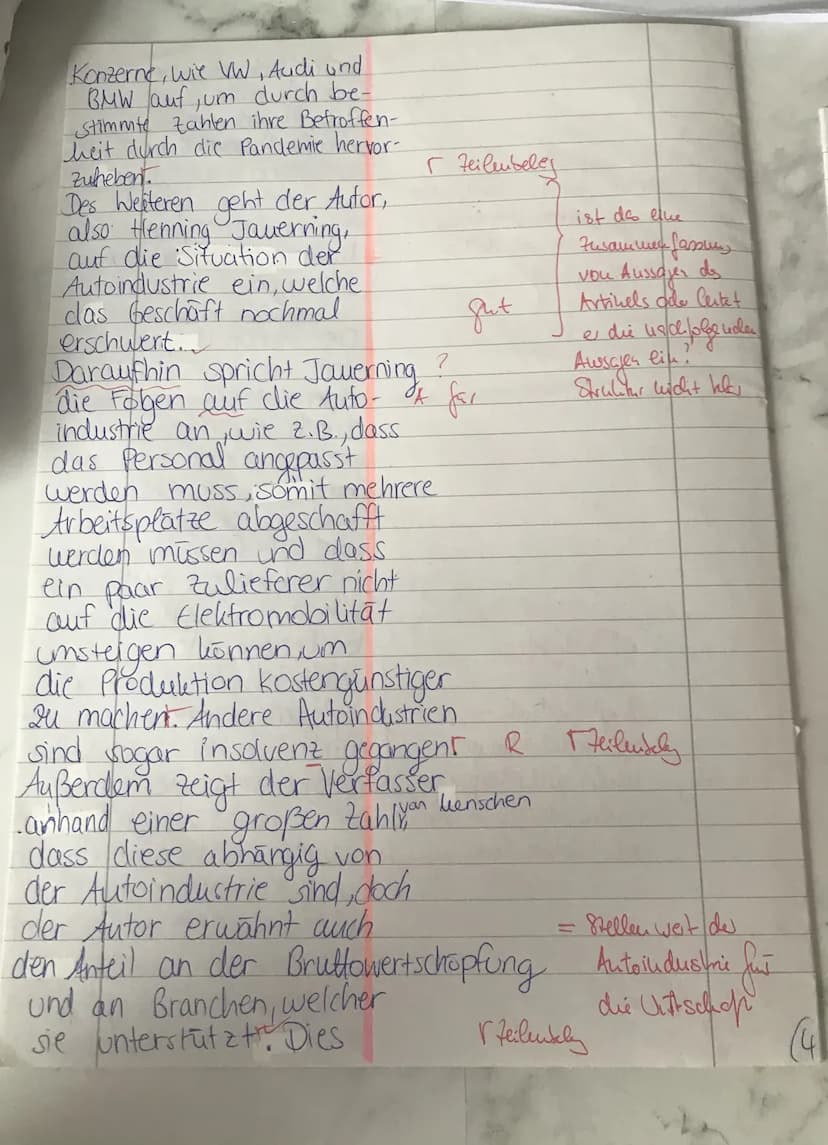 Konzerne, wie VW, Audi und
BMW auf, um durch be-
stimmte Zahlen ihre Betroffen-
heit durch die Pandemie hervor-
zuheben.
Γ Zeilenbeleg
Des Weiteren geht der Autor,
also Henning Jauerning,
auf die Situation der
Autoindustrie ein, welche
das Geschäft nochmal
erschwert.
gut
ist das eine
Zusammenfassung
von Aussagen des
Artikels oder leitet
er die nachfolgenden
Aussagen ein?
Struktur nicht klar
Daraufhin spricht Jauerning ?
die Folgen auf die Auto- A für
industrie an, wie z.B., dass
das Personal angepasst
werden muss, somit mehrere
Arbeitsplätze abgeschafft
werden müssen und dass
ein paar Zulieferer nicht
auf die Elektromobilität
umsteigen können, um
die Produktion kostengünstiger
zu machen. Andere Autoindustrien
sind sogar insolvenz gegangen Γ R Γ Zeilenbeleg
Außerdem zeigt der Verfasser
anhand einer großen Zahl von Menschen,
dass diese abhängig von
der Autoindustrie sind, doch
der Autor erwähnt auch
den Anteil an der Bruttowertschöpfung
und an Branchen, welcher
sie unterstützt. Dies
= Stellenwert der
Autoindustrie für
die Wirtschaft
Γ Zeilenbeleg
(4